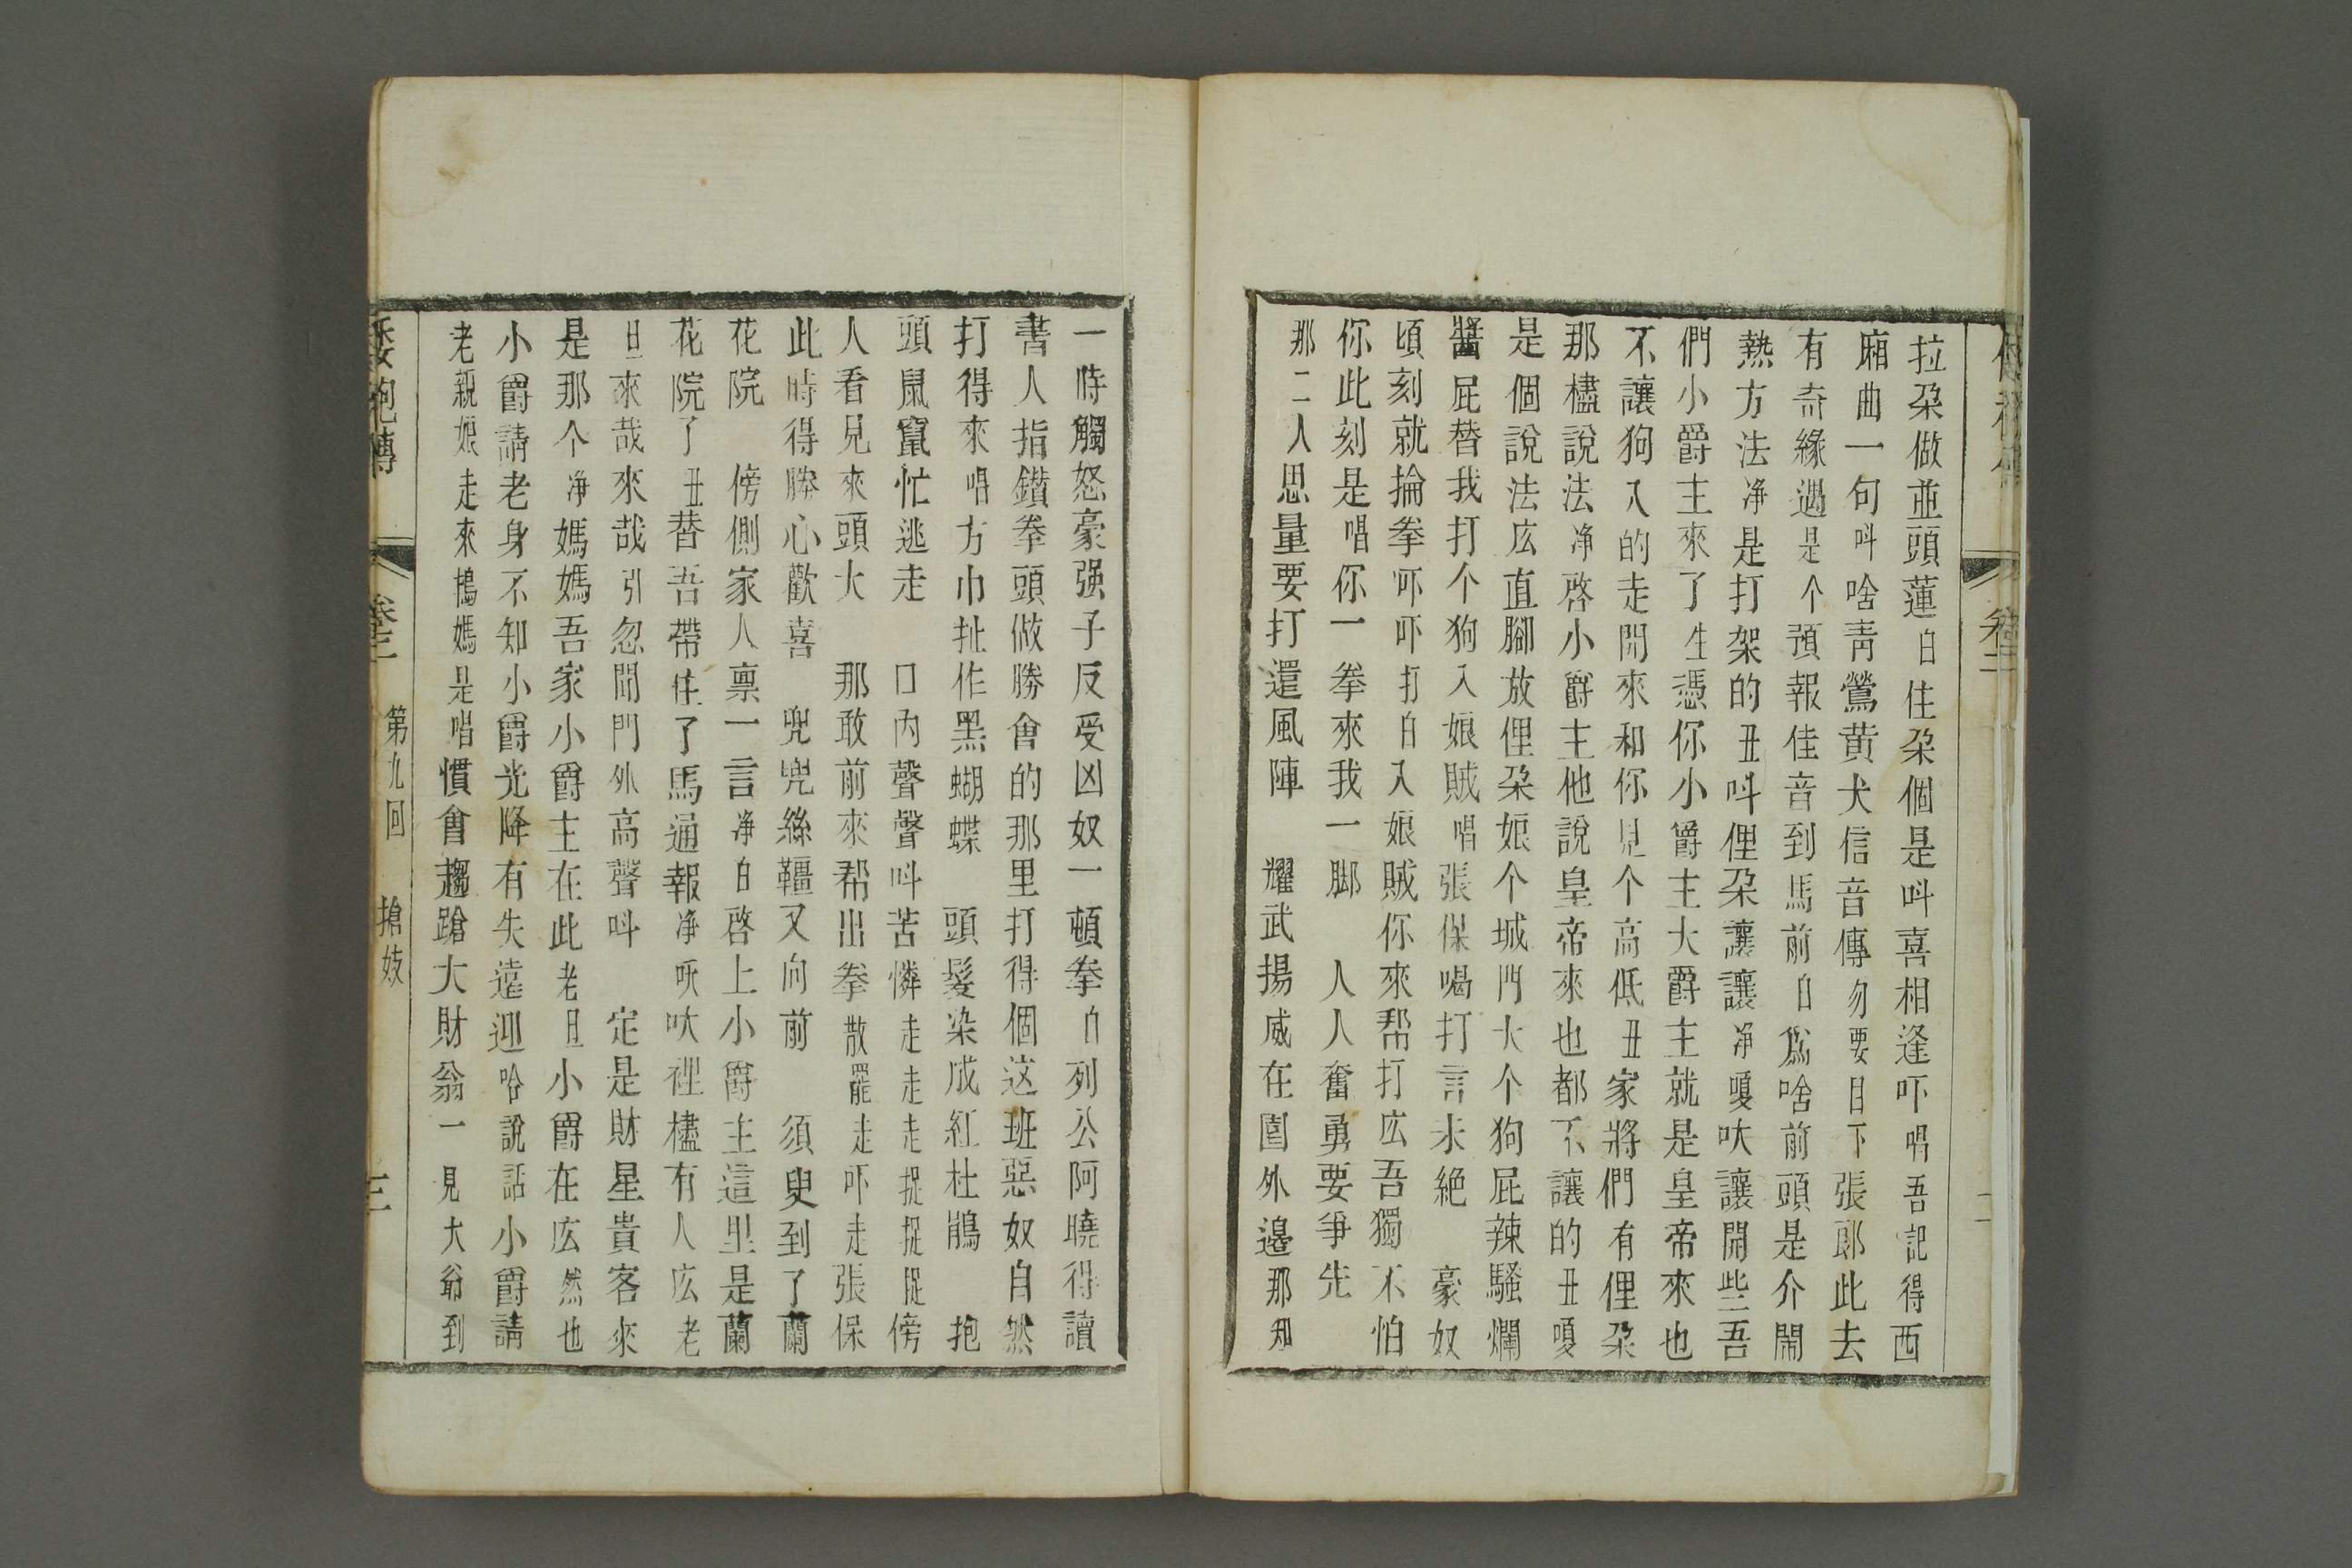 拉朶做並頭蓮白住朶個是呌喜相逢吓唱吾記得西
廂曲一句呌啥靑鶯黄犬信音傳勿要目下張郎此去
有奇緣遇是个預報佳音到馬前白爲啥前頭是介鬧
熱方法净是打架的丑呌俚朶讓讓净嗄吠讓開些吾
們小爵主來了生憑你小爵主大爵主就是皇帝來也
不讓狗入的走開來和你見个高低丑家將們有俚朶
那櫨說法净啓小爵主他說皇帝來也都不讓的丑嗄
是個說法庅直腳放俚朶娘个城門大个狗屁辣騷爛
醬屁替我打个狗入娘賊唱張保喝打言未絶　豪奴
頃刻就掄拳吥吓打白入娘賊你來帮打庅吾獨不怕
你此刻是唱你一拳來我一脚　人人奮勇要爭先
那二人思量要打還風陣　耀武揚威在圍外邉那知
卷三
二
一時觸怒豪强子反受凶奴一頓拳白列公阿曉得讀
書人指鑽拳頭做勝會的那里打得個这班惡奴自然
打得來唱方巾扯作黑蝴蝶　頭髮染成紅杜鵑　抱
頭鼠竄忙逃走　口内聲聲呌苦憐走走走捉捉捉傍
人看見來頭大　那敢前來帮出拳散罷走吓走張保
此時得勝心歡喜　兜兜絲韁又向前　須臾到了蘭
花院　傍側家人禀一言净白啓上小爵主這里是蘭
花院了丑替吾帶住了馬通報净吷吠裡櫨有人庅老
旦來哉來哉引忽聞門外高聲呌　定是財星貴客來
是那个净媽媽吾家小爵主在此老旦小爵在庅然也
小爵請老身不知小爵光降有失遠迎哈說話小爵請
老親娘走來搗媽是唱慣會趨蹌大財翁一見大爺到
袍傳
卷三
第九回　搶妓
三